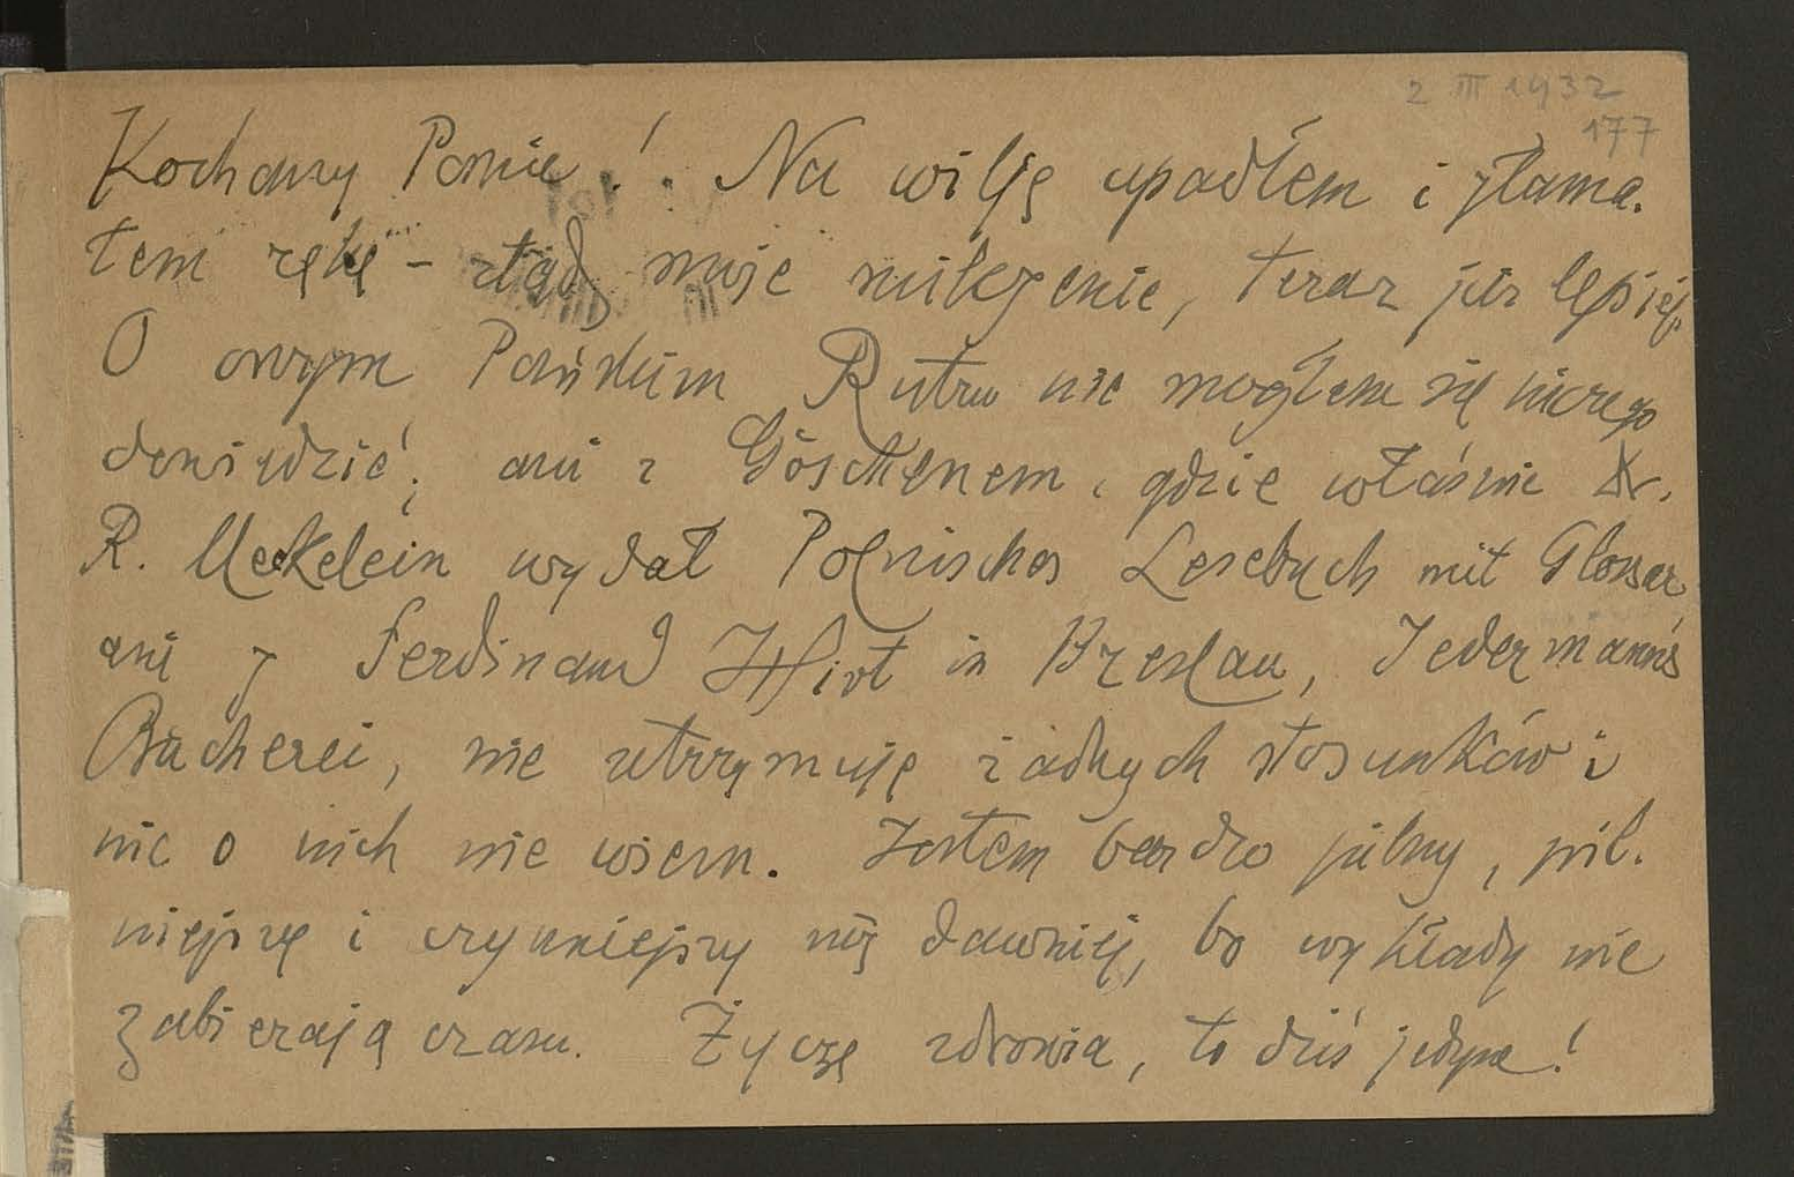 2 III 1932
177
Kochany Panie! Na wilję upadłem i złama.
łem rękę – stąd moje milczenie, teraz już lepiej.
O owym Pańskim Rutrze nie mogłem się niczego
dowiedzić; ani z Göschenem, gdzie właśnie Dr.
R. Meckelein wydał Polnisches Lesebuch mit Glossar
ani z Ferdinand Hirt in Breslau, Jedermanns
Bücherei, nie utrzymuję żadnych stosunków i
nic o nich nie wiem. Jestem bardzo pilny, pil.
niejszy i czynniejszy niż dawniej, bo wykłady nie
zabierają czasu. Życzę zdrowia, to dziś jedyne!